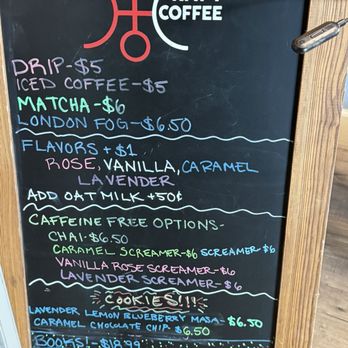 COFFEE
DRIP-$5
ICED COFFEE-$5
MATCHA-$6
LONDON FOG-$6.50
FLAVORS +$1
ROSE, VANILLA, CARAMEL
LAVENDER
ADD OAT MILK +50¢
CAFFEINE FREE OPTIONS-
CHAI-$6.50
CARAMEL SCREAMER-$6 SCREAMER-$6
VANILLA ROSE SCREAMER-$6
LAVENDER SCREAMER-$6
COOKIES!!!
LAVENDER LEMON BLUEBERRY MASA-$6.50
CARAMEL CHOCOLATE CHIP $6.50
BOOKS!-$18.99